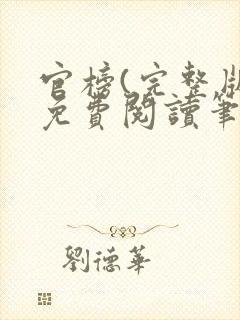 官榜(完整版
免費閱讀筆
劉德華